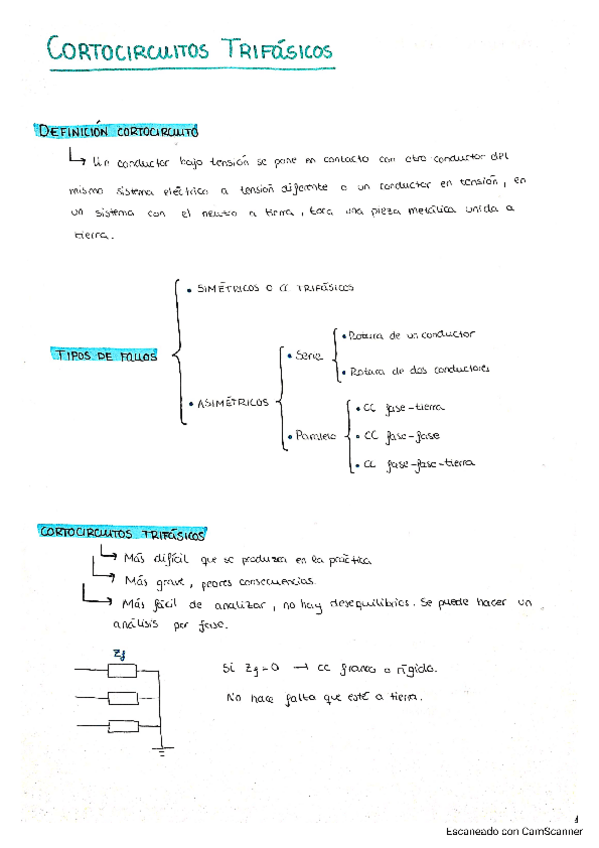 CORTOCIRCUITOS TRIFÁSICOS
DEFINICIÓN CORTOCIRCUITO
Un conductor bajo tensión se pone en contacto con otro conductor del
mismo sistema eléctrico a tensión diferente o un conductor en tensión, en
un sistema con el neutro a tierra, toca una pieza metálica unida a
tierra.
TIPOS DE FALLOS
• SIMÉTRICOS O CC TRIFÁSICOS
• ASIMÉTRICOS
• Serie
• Rotura de un conductor
• Rotura de dos conductores
• Paralelo
• CC fase-tierra
• CC fase-fase
• CC fase-fase-tierra
CORTOCIRCUITOS TRIFÁSICOS
Más difícil que se produzca en la práctica
Más grave, peores consecuencias.
Más fácil de analizar, no hay desequilibrios. Se puede hacer un
análisis por fase.
Zf
Si Zf=0 → CC franco o rígido.
No hace falta que esté a tierra.
1
Escaneado con CamScanner